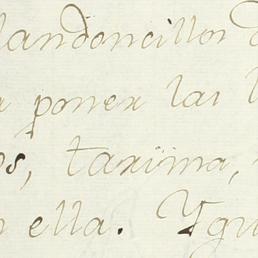 landoncillos
poner las
os, tarima,
ella. Ygu